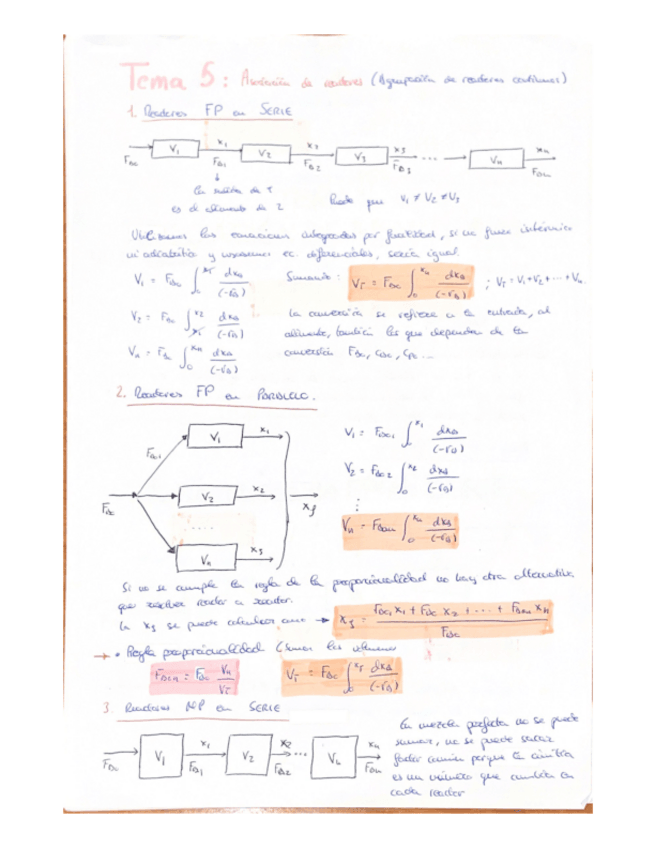 Tema 5: Asociación de reactores (Agrupación de reactores continuos)
1. Reactores FP en SERIE
V1 x1 V2 x2 V3 x3 ... Vn xn
FA0 FA1 FA2 FA3 FAn
La salida de 1
es el alimento de 2
Puede que V1 ≠ V2 ≠ V3
Utilizamos las ecuaciones integradas por facilidad, si no fuera isotérmico
ni adiabático y usásemos ec. diferenciales, sería igual.
V1 = FA0 ∫0 x1 dxA/(-rA)
Sumando: VT = FA0 ∫0 xn dxA/(-rA) ; VT = V1 + V2 + ... + Vn
V2 = FA0 ∫x1 x2 dxA/(-rA)
La conversión se refiere a la entrada, al
alimento, también las que dependen de la
conversión FA0, CA0,
2. Reactores FP en PARALELO.
V1 x1
FA01
V2 x2
FA0
xf
....
Vn x3
V1 = FA01 ∫0 x1 dxA/(-rA)
V2 = FA02 ∫0 x2 dxA/(-rA)
⋮
Vn = FA0n ∫0 xn dxA/(-rA)
Si no se cumple la regla de la proporcionalidad no hay otra alternativa
que resolver reactor a reactor.
La xf se puede calcular como → xf = FA01 x1 + FA0 x2 + ... + FA0n xn / FA0
→ • Regla proporcionalidad (Sumar los volúmenes
FA0n = FA0 Vn/VT
VT = FA0 ∫0 xf dxA/(-rA)
3. Reactores MP en SERIE
V1 x1 V2 x2 ... Vn xn
FA0 FA1 FA2 FAn
En mezcla perfecta no se puede
sumar, no se puede sacar
factor común porque la
es un número que cambia en
cada reactor